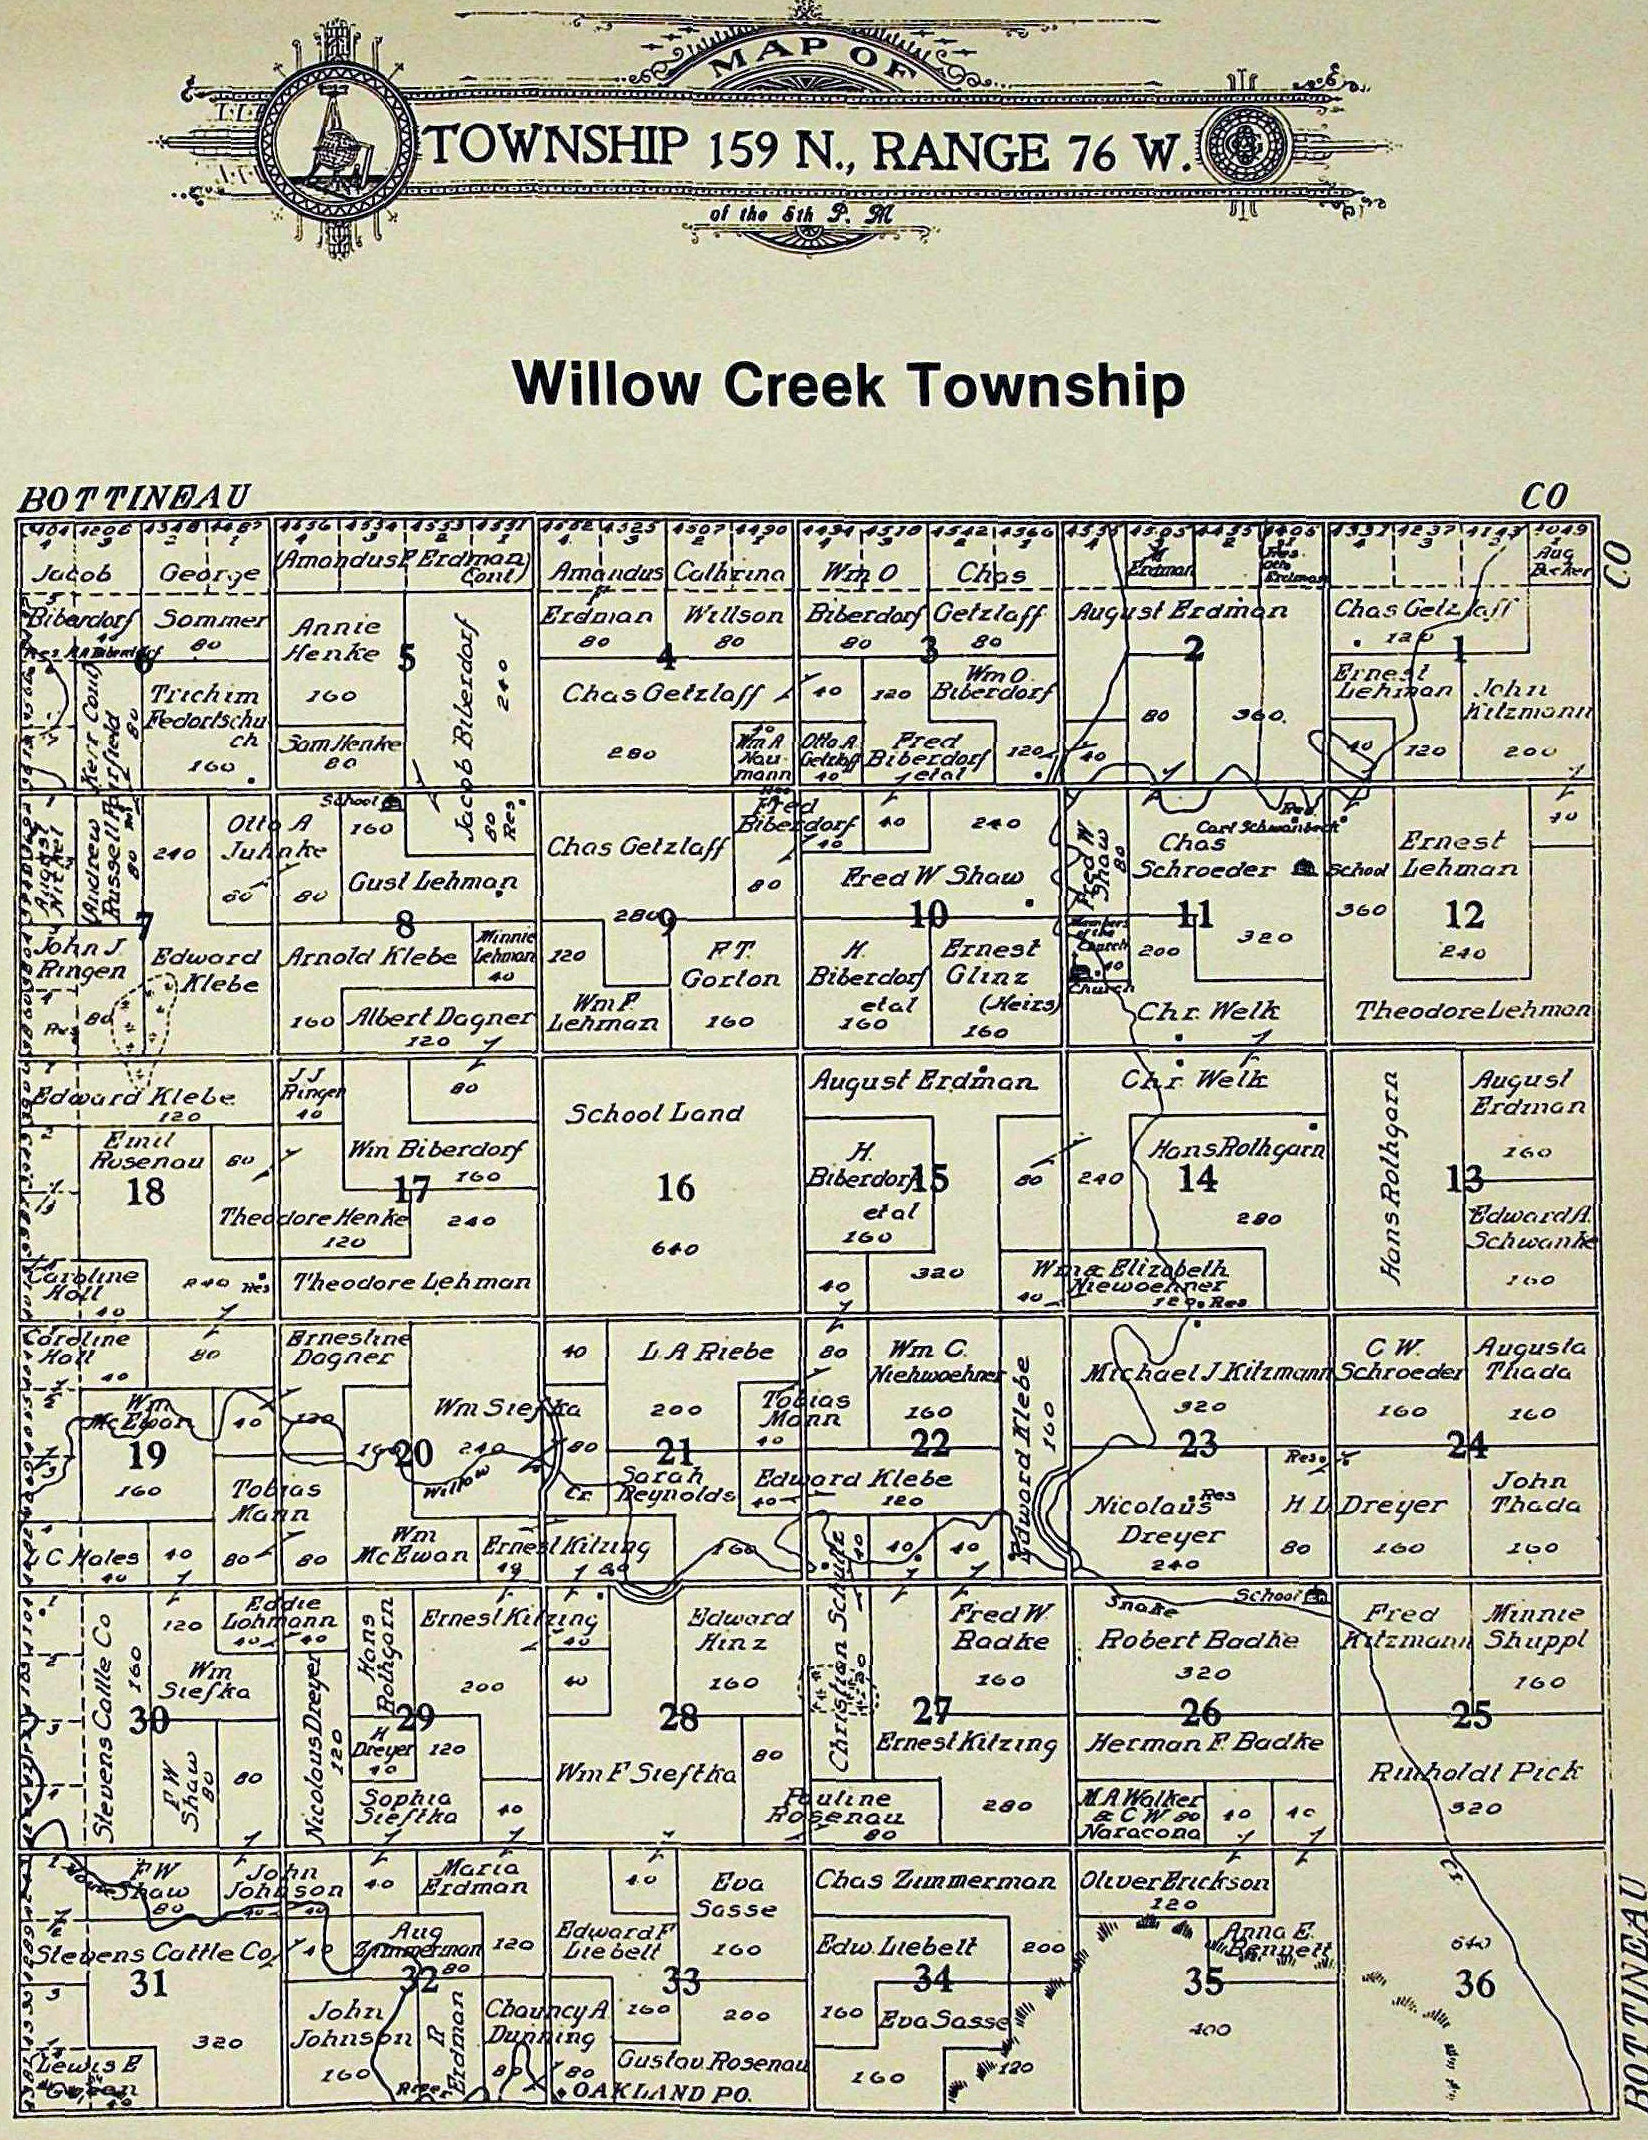 MAP OF
TOWNSHIP 159 N., RANGE 76 W.
of the 5th P. M
Willow Creek Township
BOTTINEAU
CO
CO
Jacob
Biberdorf
George
Sommer
80
(Amandus P Erdman
Cont)
Amandus
Erdman
80
Cathrina
Willson
80
Wm O
Biberdorf
80
Chas
Getzlaff
80
M
Erdman
August Erdman
Aug
Chas Getzlaff
120
6
Kerr Couly
Trichim
Fedortschu
ch
160
Annie
Henke
160
5
Sam Henke
80
Jacob Biberdorf
240
4
Chas Getzlaff
280
Wm A
Nau
mann
40
120
3
Wm O
Biberdorf
Otto A
Getzlaff
40
Fred
Biberdorf
etal
120
2
80
360
40
1
Ernest
Lehman
40
120
John
Kitzmann
200
Andrew
Russell Fairfield
80
240
Otto A
Juhnke
80
School
160
80
Res
Gust Lehman
80
Chas Getzlaff
280
Fred
Biberdorf
40
80
40
240
Fred W Shaw
Fred W
Shaw
80
Carl Schwanbeck
Chas
Schroeder
School
360
Ernest
Lehman
40
7
8
9
10
11
12
John J
Ringen
80
Edward
Klebe
Arnold Klebe
Minnie
Lehman
40
160
Albert Dagner
120
120
Wm F.
Lehman
F. T.
Gorton
160
H.
Biberdorf
etal
160
Ernest
Glinz
(Heirs)
160
Members
of the
Church
40
Church
200
320
Chr. Welk
240
Theodore Lehman
Edward Klebe
120
J J
Ringen
40
80
School Land
August Erdman
Chr. Welk
Hans Rothgarn
August
Erdman
160
Emil
Rosenau
80
Wm Biberdorf
160
18
17
16
15
14
13
Theodore Henke
120
240
640
H.
Biberdorf
etal
160
80
240
Hans Rothgarn
280
Edward A.
Schwanke
160
Caroline
Holl
40
240
Res
Theodore Lehman
40
320
40
Wm & Elizabeth
Niewoehner
120. Res
Caroline
Holl
40
80
Ernestine
Dagner
120
40
L A Riebe
200
80
Wm C.
Niehwoehner
160
Edward Klebe
160
Michael J Kitzmann
320
C W.
Schroeder
160
Augusta
Thada
160
Wm
McEwan
40
Wm Siefka
240
80
Tobias
Mann
40
19
20
21
22
23
24
160
Tobias
Mann
Willow
Cr.
Sarah
Reynolds
Edward Klebe
40
120
Res.
Nicolaus
Res
Dreyer
240
H. L. Dreyer
80
160
John
Thada
160
L C Hales
40
40
80
80
Wm
McEwan
Ernest Kitzing
160
40
40
Christian Schultz
40
80
120
Stevens Cattle Co
160
Eddie
Lohmann
40
40
Hans
Rothgarn
Ernest Kitzing
40
200
40
Edward
Hinz
160
Fred W
Badke
160
Snake
School
Robert Badke
320
Fred
Kitzmann
Minnie
Shuppl
160
Wm
Siefka
30
29
28
27
26
25
F W
Shaw
80
80
Nicolaus Dreyer
120
H
Dreyer
40
120
Sophia
Sieftka
40
Wm F Sieftka
80
Pauline
Rosenau
80
Ernest Kitzing
280
Herman F. Badke
M. A Walker
& C W 80
Naracong
40
40
Rinholdt Pick
320
F W
Shaw
80
John
Johnson
40
40
40
Maria
Erdman
40
Eva
Sasse
160
Chas Zimmerman
Oliver Erickson
120
Stevens Cattle Co.
40
Aug
Zimmerman
80
120
Edward F
Liebelt
Edw. Liebelt
200
Anna E.
Bennett
640
31
32
33
34
35
36
320
John
Johnson
160
R
Erdman
Chauncy A
Dunning
80
80
160
200
160
Eva Sasse
400
Lewis E
40
River
Gustav. Rosenau
OAKLAND PO.
160
120
BOTTINEAU